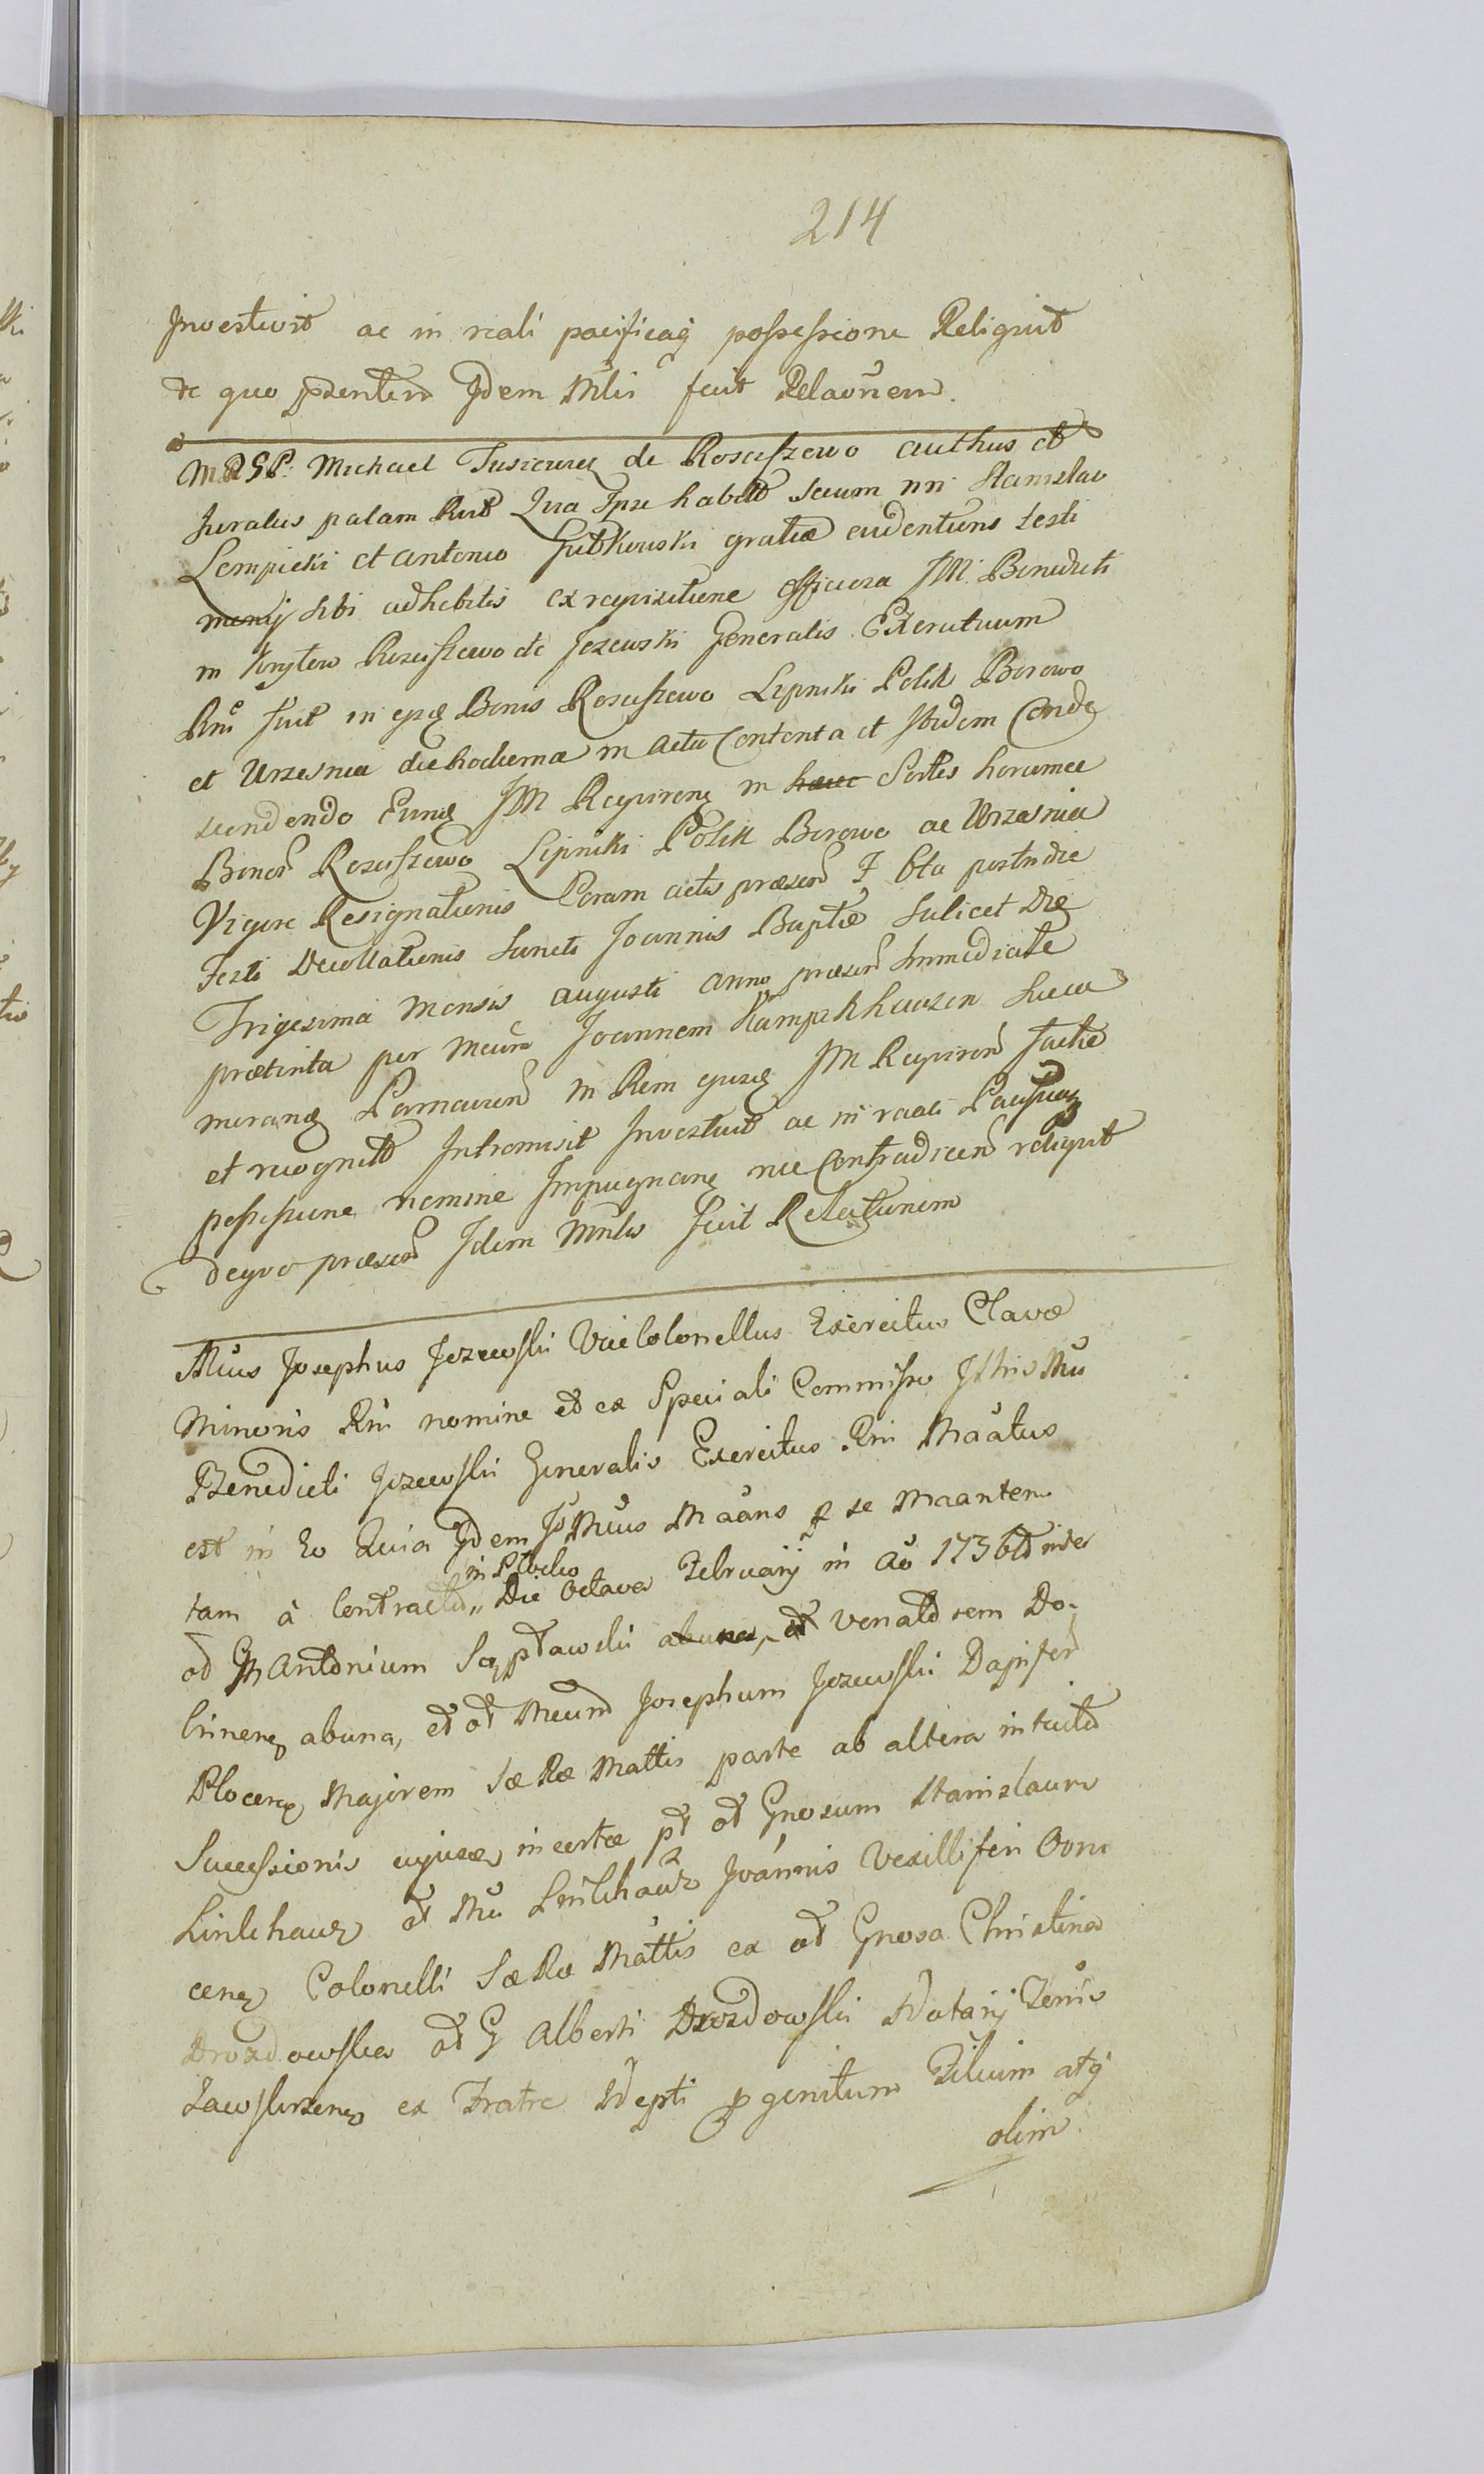 214
Investivit ac in reali pacificaq possessione Reliquit
de quo prentem Idem Mlis fecit Relaonem.
MRGP. Michael Tusieweg de Rosciszewo authus et
Juratus palam Rnt Qua Ipse habitt secum nn Stanislao
Lempicki et Antonio Gutkowski gratiæ evidentiens testi
monij sibi adhibitis ex reqvisitione officiosa JM Benedicti
in Rosciszewo de Jezewski Generalis Exercituum
Rni fuit in ejsq Bonis Rosciszewo Lipniki Polik Borowo
et Wrzesnia die hodierna in actu Contenta et Ibidem Conde
scendendo Eunq JM Reqvirenq in Sortes horumce
Bonor Rosciszewo Lipniki Polik Borowo ac Wrzesnia
Vigore Resignationis Coram actis præsen F bta postridie
Festi Decollationis Sancti Joannis Baptæ scilicet Die
Trigesima Mensis Augusti anno præsen Immediate
præterita per Mcum Joannem Kampzkhauzen Succa
meranq Parnavien in Rem ejusq JM Reqviren factæ
et recognitt Intromisit Investivit ac in reali Pacificaq
possessione nemine Impugnanq nec Contradicen reliqvit
deqvo præsen Idem Mnlis fecit Relationem
Mcus Josephus Jezewski Vicecolonellus Exercitus Clavæ
Minoris Rni nomine et ex Speciali Commisso Illris Mci
Benedicti Jezewski Generalis Exercitus Rni Maatus
est in Eo Quia Idem Js Mcus Maans p se Maanten
tam à Contractu,, Die Octava Februarij in Ao 1736tt inter
in Plocko
et GM Antonium Sęptawski et venalt rem Do-
brinenq ab una, et et Mcum Josephum Jezewski Dapifer
Plocenq Majorem Sæ Ræ Mattis parte ab altera intuitu
Successionis cujusq incertæ pt et Gnosum Stanislaum
Linkhauz et Mci Linkhauz Joannis Vexilliferi Covn
cenq Colonelli Sæ Ræ Mattis ex et Gnosa Christina
Drozdowska et G Alberti Drozdowski Notarij Zemis
Zawskrzenq ex Fratre Nepti p genitum Filium atq
olim